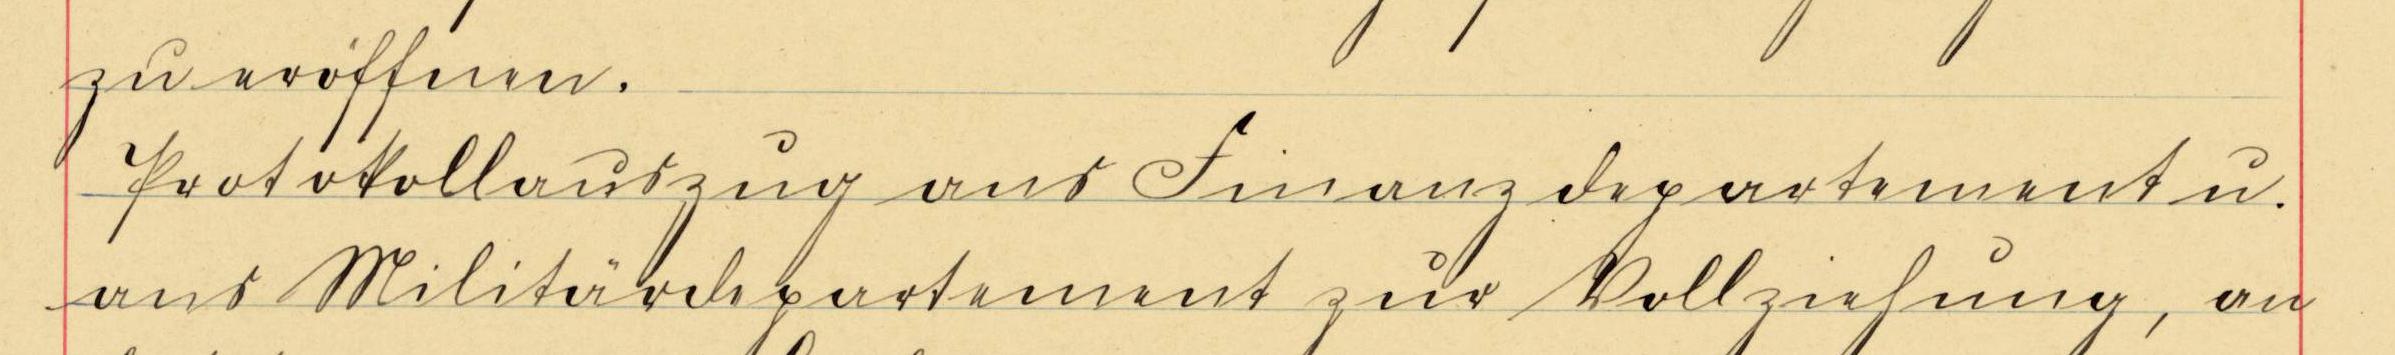 zu eröffnen.
Protokollauszug ans Finanzdepartement u.
ans Militärdepartement zur Vollziehung, an